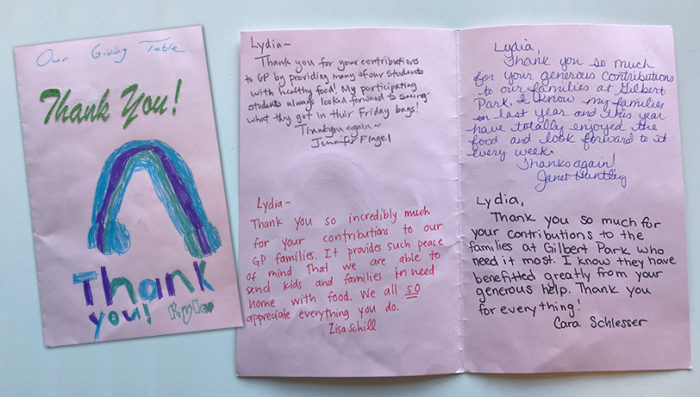 Our Giving Table
Thank You!
Thank
you! Kyler
Lydia~
Thank you for your contributions
to GP by providing many of our students
with healthy food! My participating
students always looked forward to seeing
what they got in their Friday bags!
Thank you again~
Jennifer Flagel
Lydia~
Thank you so incredibly much
for your contributions to our
GP families. It provides such peace
of mind that we are able to
send kids and families in need
home with food. We all so
appreciate everything you do.
Lisa Schill
Lydia,
Thank you so much
for your generous contributions
to our families at Gilbert
Park. I know my families
in last year and this year
have totally enjoyed the
food and look forward to it
every week.
Thanks again!
Janet Huntley
Lydia,
Thank you so much for
your contributions to the
families at Gilbert Park who
need it most. I know they have
benefitted greatly from your
generous help. Thank you
for everything!
Cara Schlesser